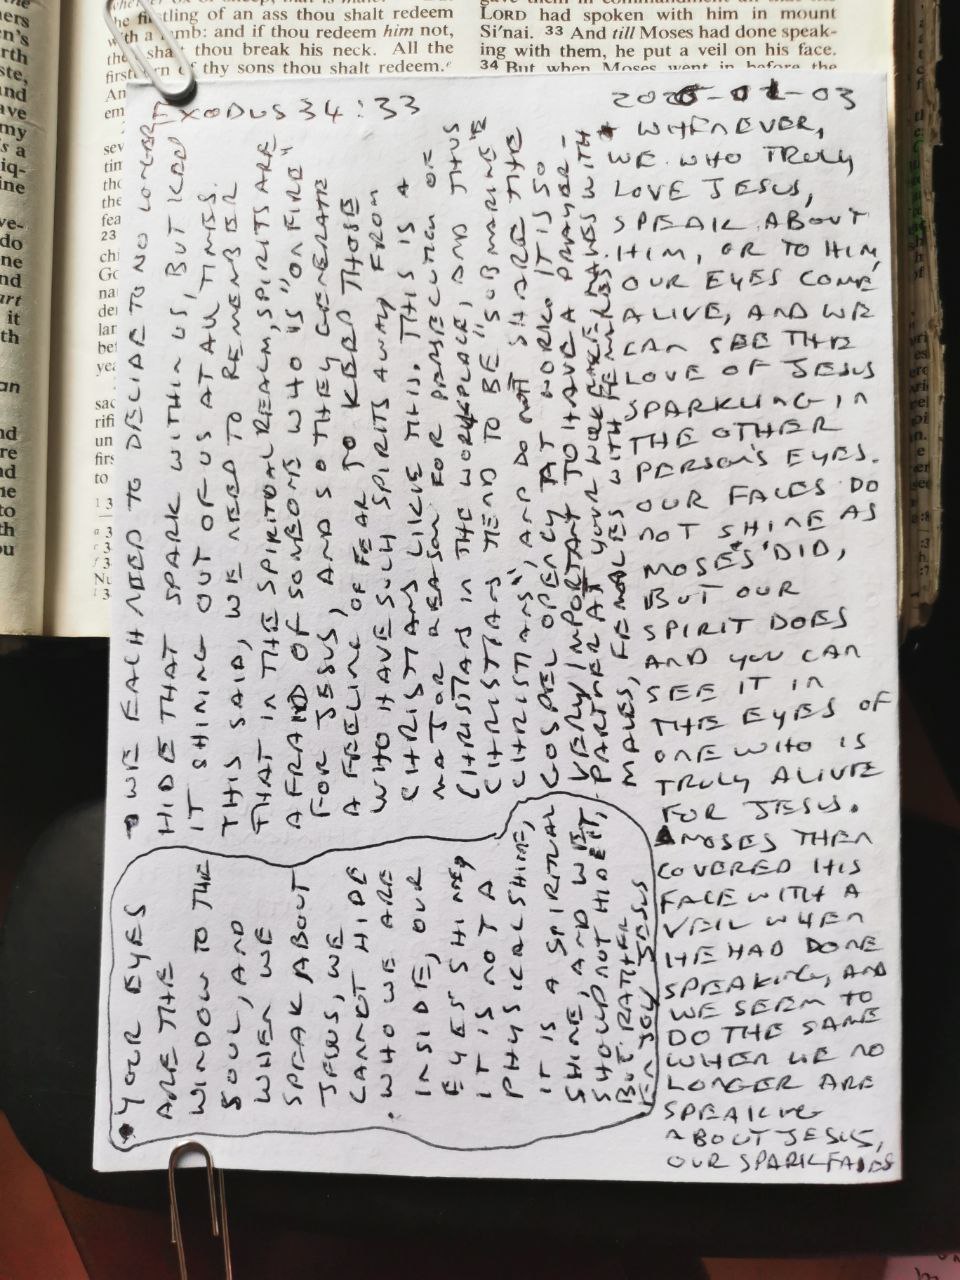 he firstling of an ass thou shalt redeem
with a lamb: and if thou redeem him not,
thou break his neck. All the
of thy sons thou shalt redeem.
LORD had spoken with him in mount
Si'nai. 33 And till Moses had done speak-
ing with them, he put a veil on his face.
34 But when Moses went in before the
EXODUS 34:33
2026-01-03
WHENEVER,
WE WHO TRULY
LOVE JESUS,
SPEAK ABOUT
HIM, OR TO HIM,
OUR EYES COME
ALIVE, AND WE
CAN SEE THE
LOVE OF JESUS
SPARKLING IN
THE OTHER
PERSON'S EYES.
OUR FACES DO
NOT SHINE AS
MOSES' DID,
BUT OUR
SPIRIT DOES
AND YOU CAN
SEE IT IN
THE EYES OF
ONE WHO IS
TRULY ALIVE
FOR JESUS.
MOSES THEN
COVERED HIS
FACE WITH A
VEIL WHEN
HE HAD DONE
SPEAKING, AND
WE SEEM TO
DO THE SAME
WHEN WE NO
LONGER ARE
SPEAKING
ABOUT JESUS,
OUR SPARK FADES
YOUR EYES
ARE THE
WINDOW TO THE
SOUL, AND
WHEN WE
SPEAK ABOUT
JESUS, WE
CANNOT HIDE
WHO WE ARE
INSIDE, OUR
EYES SHINE,
IT IS NOT A
PHYSICAL SHINE,
IT IS A SPIRITUAL
SHINE, AND WE
SHOULD NOT HIDE IT,
BUT RATHER
ENJOY JESUS
WE EACH NEED TO DECIDE TO NO LONGER
HIDE THAT SPARK WITHIN US, BUT KEEP
IT SHINING OUT OF US AT ALL TIMES.
THIS SAID, WE NEED TO REMEMBER
THAT IN THE SPIRITUAL REALM, SPIRITS ARE
AFRAID OF SOMEONE WHO IS "ON FIRE"
FOR JESUS, AND SO THEY GENERATE
A FEELING OF FEAR TO KEEP THOSE
WHO HAVE SUCH SPIRITS AWAY FROM
CHRISTIANS LIKE THIS. THIS IS A
MAJOR REASON FOR PERSECUTION OF
CHRISTIANS IN THE WORKPLACE, AND THUS
CHRISTIANS TEND TO BE "SUBMARINE
CHRISTIANS", AND DO NOT SHARE THE
GOSPEL OPENLY AT WORK. IT IS SO
VERY IMPORTANT TO HAVE A PRAYER-
PARTNER AT YOUR WORKPLACE, MALES WITH
MALES, FEMALES WITH FEMALES.